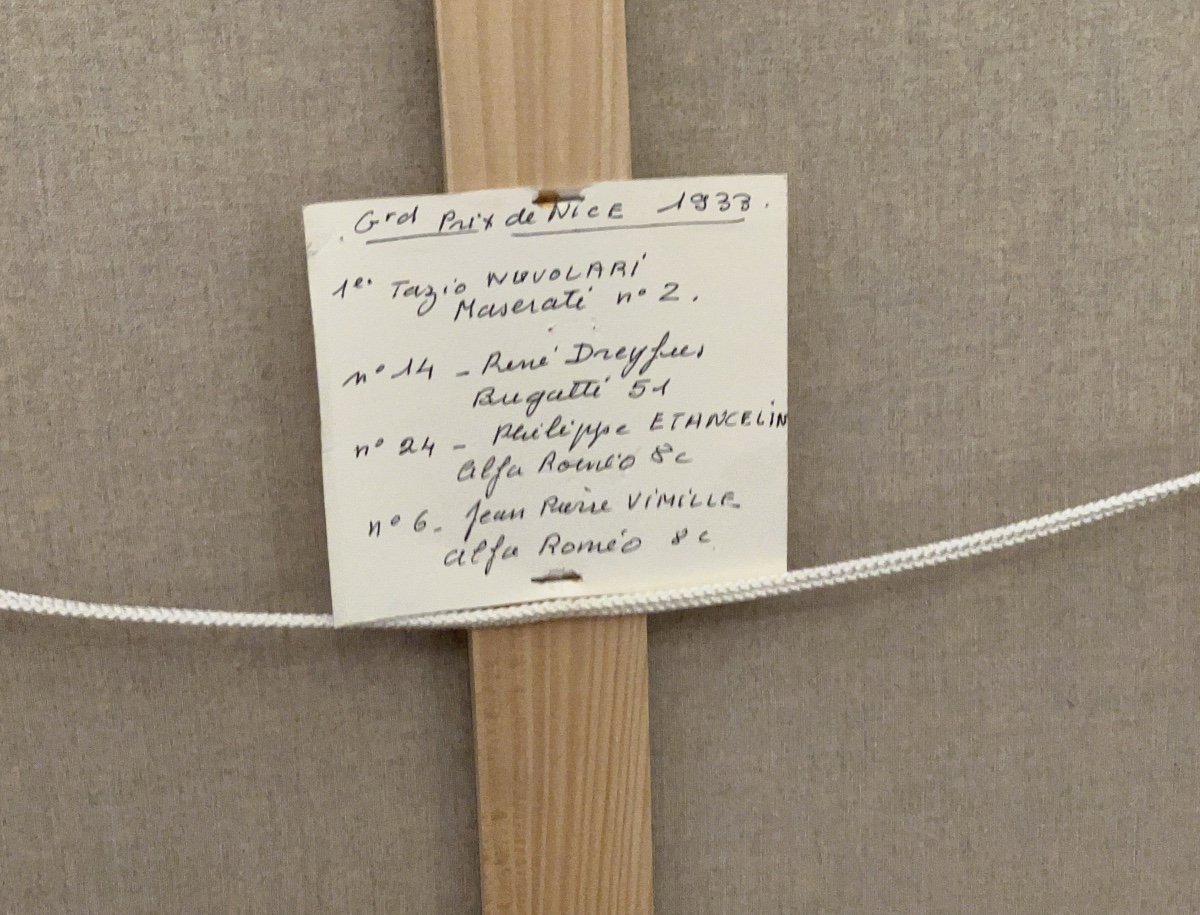 Grd Prix de NICE 1933.
1er Tazio NUVOLARI
Maserati n° 2.
n° 14 - René Dreyfus
Bugatti 51
n° 24 - Philippe ETANCELIN
Alfa Roméo 8c
n° 6 - Jean Pierre VIMILLE
Alfa Roméo 8c